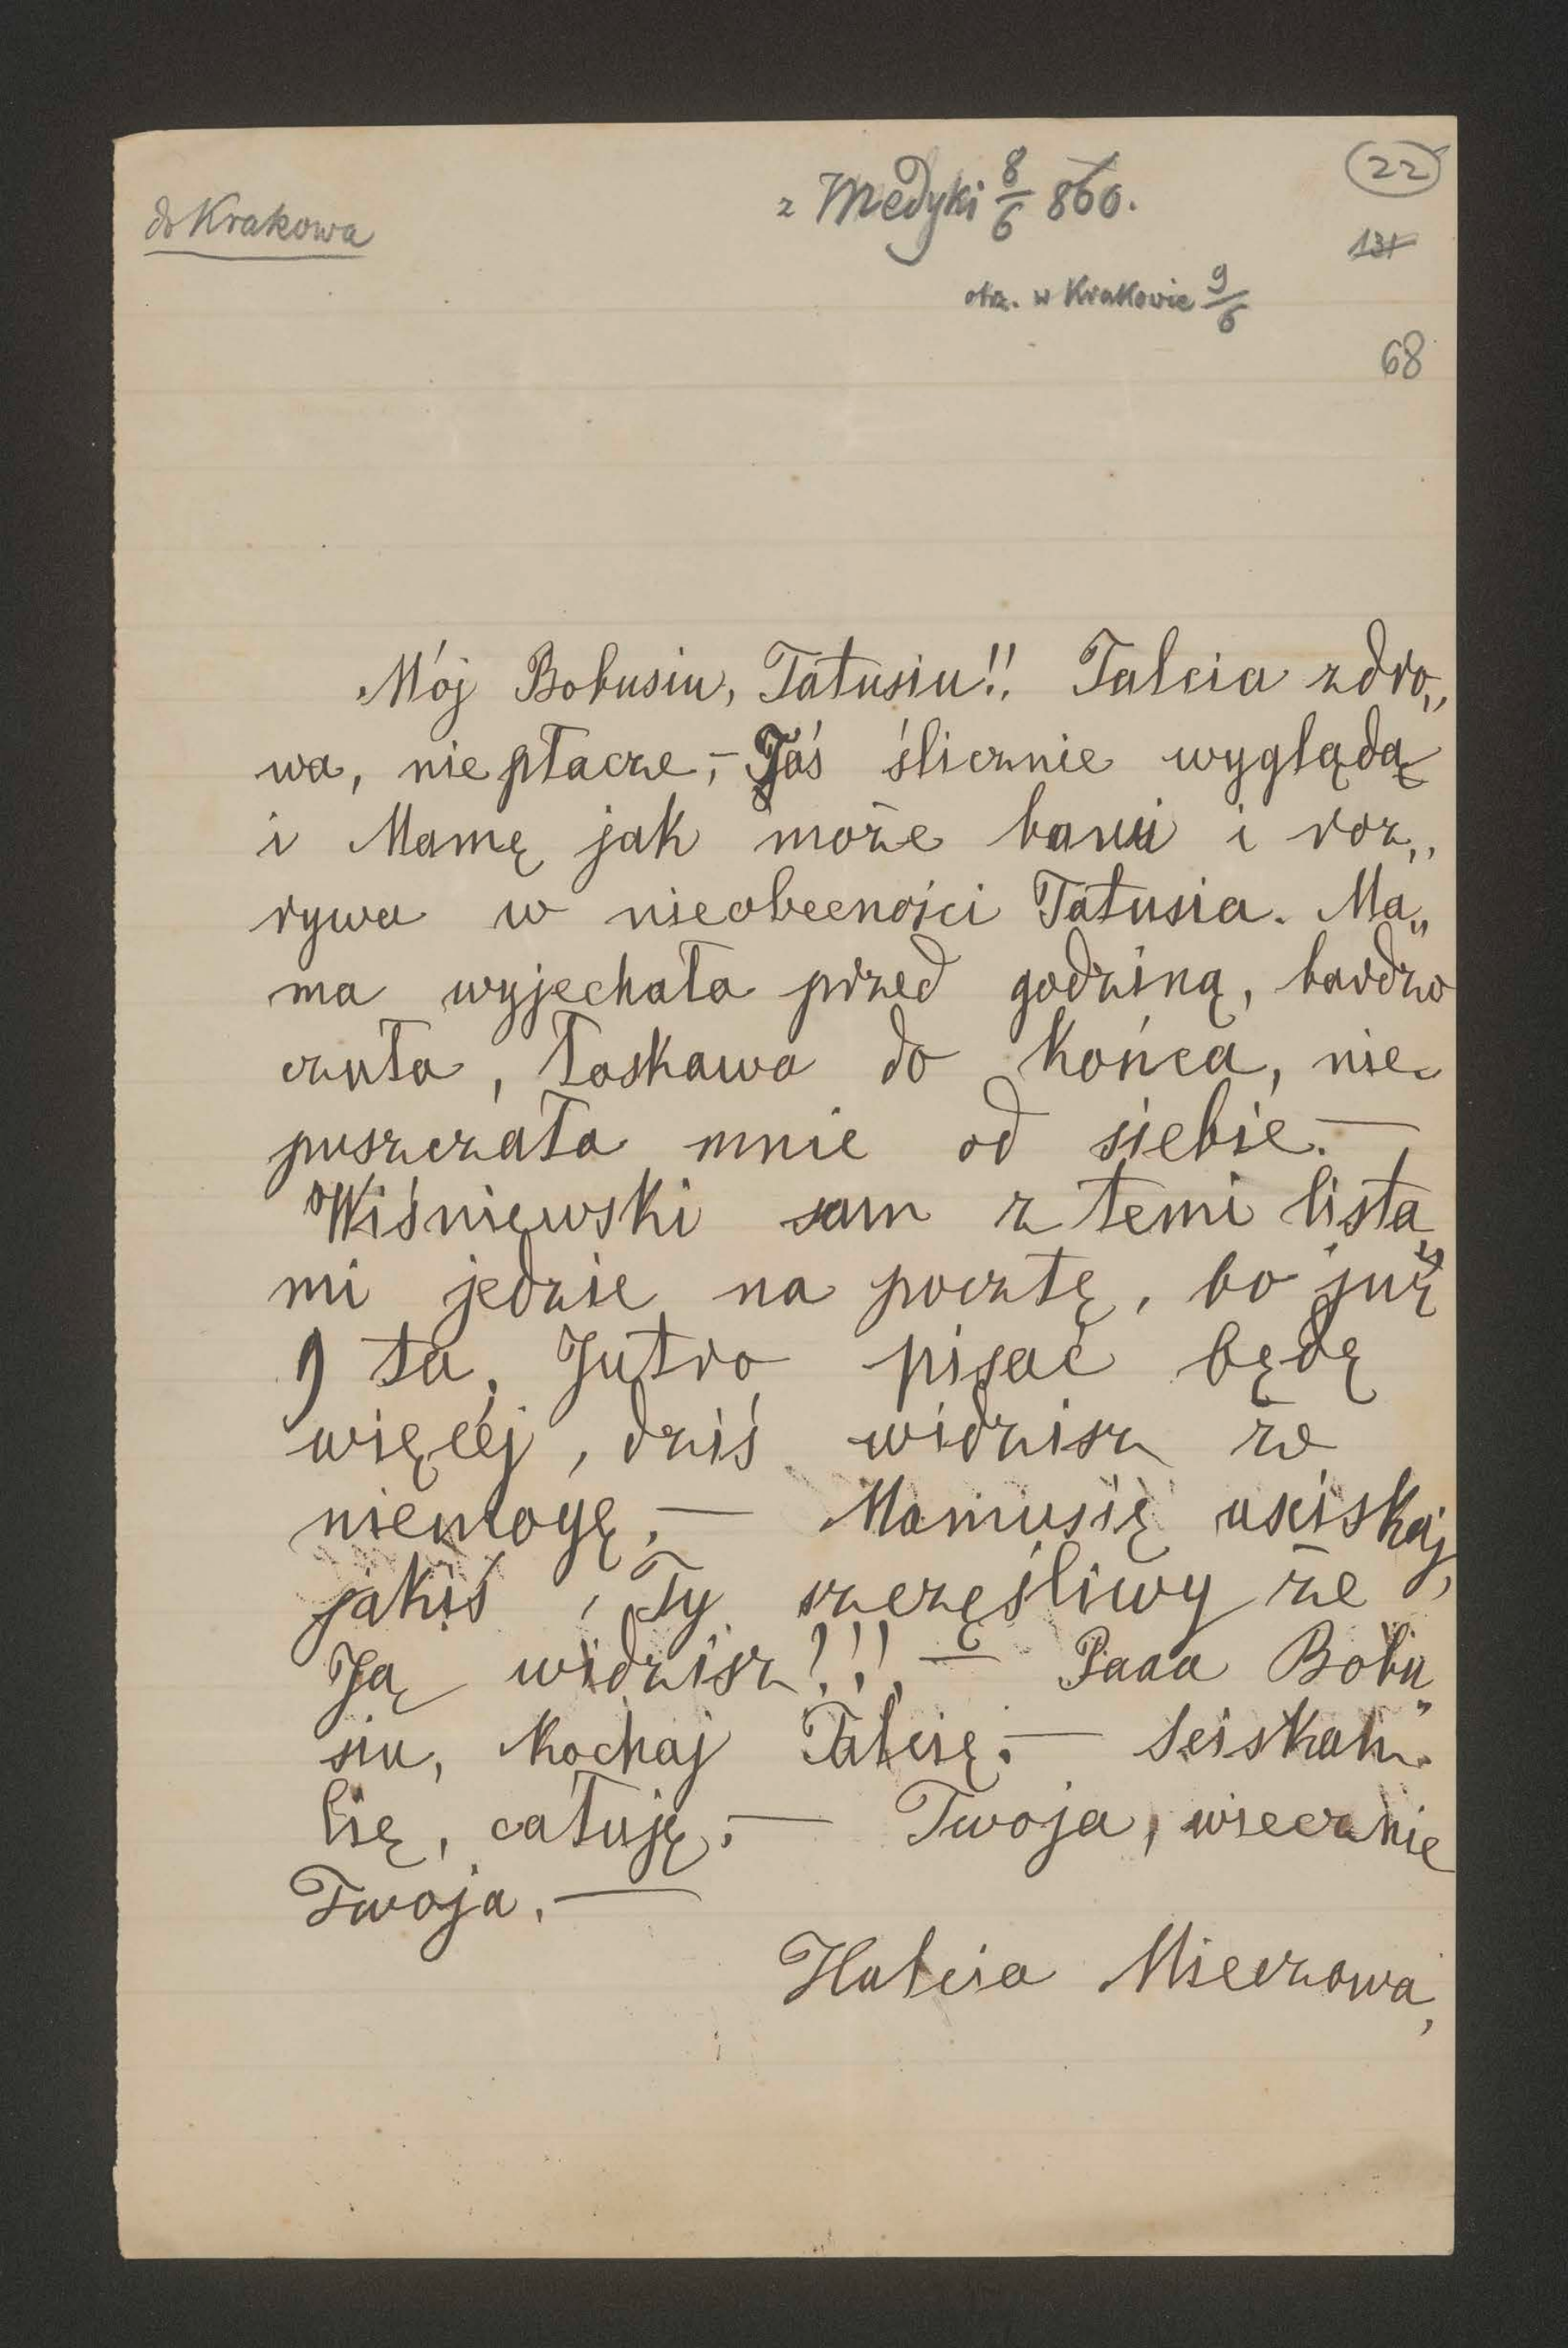 do Krakowa
z Medyki 8/6 860.
22
131
otrz. w Krakowie 9/6
68
Mój Bobusiu, Tatusiu!! Talcia zdro„
wa, nie płacze,— Jaś ślicznie wygląda
i Mamę jak może bawi i roz„
rywa w nieobecności Tatusia. Ma„
ma wyjechała przed godziną, bardzo
czuła, łaskawa do końca, nie
puszczała mnie od siebie.—
Wiśniewski sam z temi lista„
mi jedzie na pocztę, bo już
9 ta. Jutro pisać będę
więcéj, dziś widzisz że
niemogę.— Mamusię uściskaj,
jakiś Ty szczęśliwy że
Ją widzisz!!!.— Paaa Bobu„
siu, kochaj Talcię.—
lię, całuję.— Twoja, wiecznie
Twoja.—
Halcia Mieczowa,